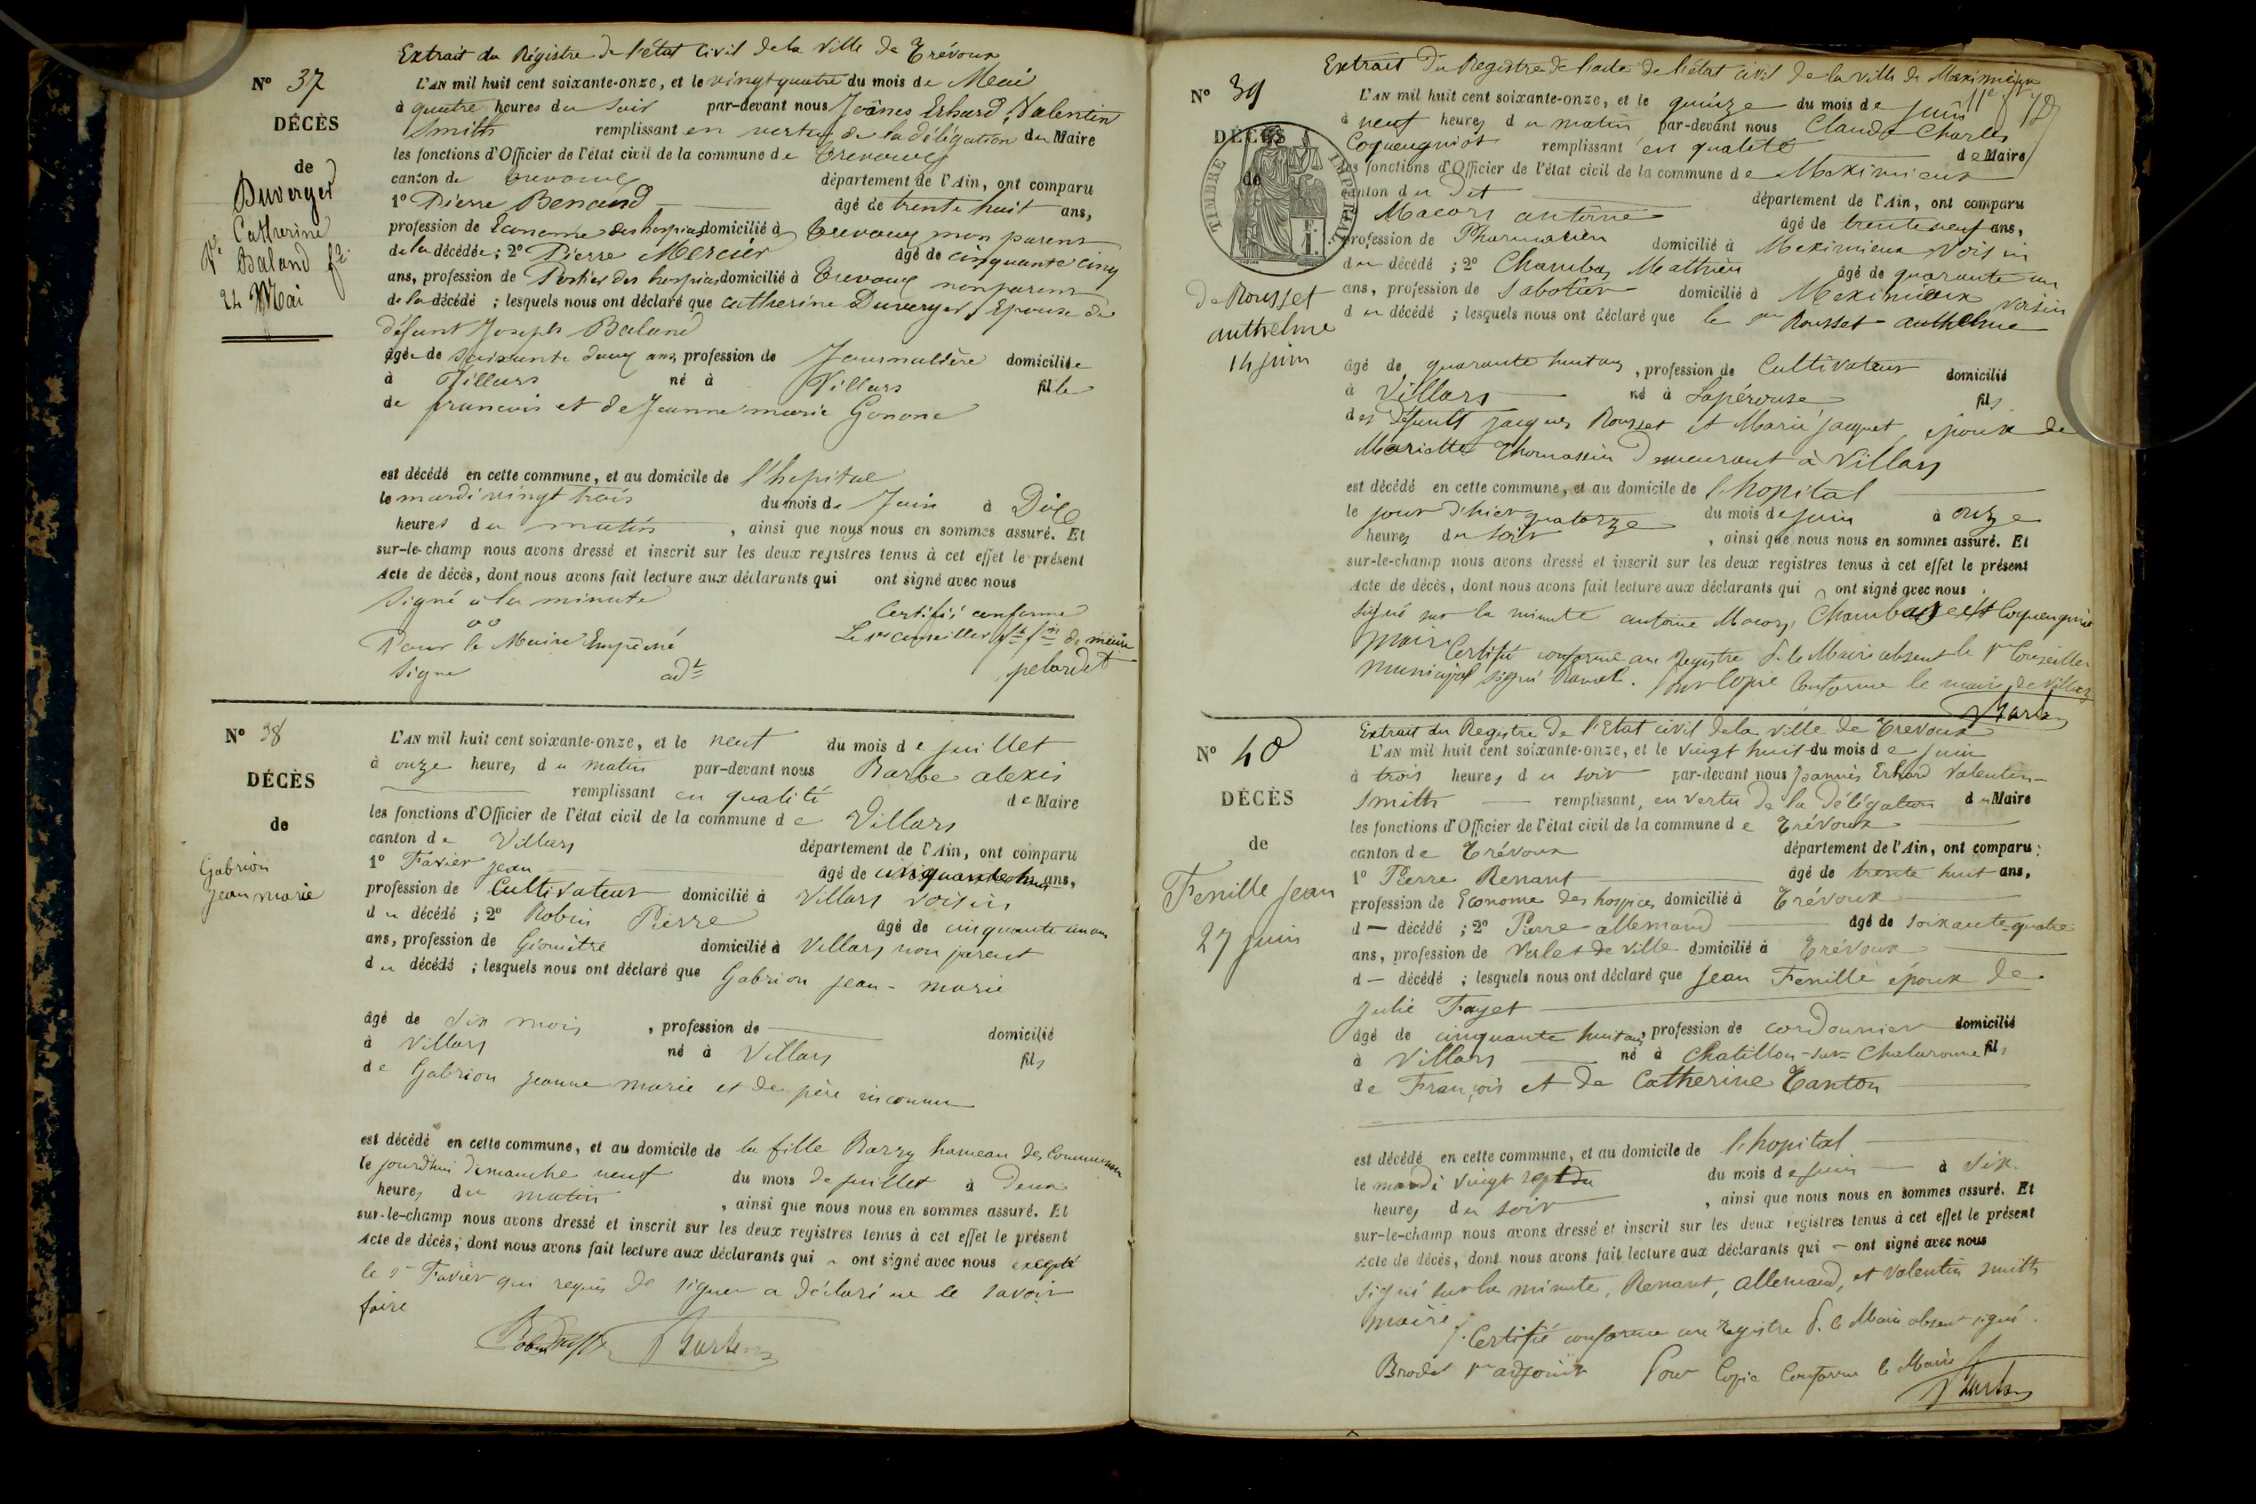 Extrait du Régistre de l'état Civil de la Ville de Trévoux
N° 37
L'AN mil huit cent soixante-onze, et le vingt quatre du mois de Mai
à quatre heures du soir par-devant nous Joânes Erhard Valentin
DÉCÈS
Smith remplissant en vertu de la délégation du Maire
les fonctions d'Officier de l'état civil de la commune de Trevoux
de
canton de trevoux département de l'Ain, ont comparu
Duverger
Catherine
Ve Baland
24 Mai
1° Pierre Benand âgé de trente huit ans,
profession de Econome des hospices domicilié à Trevoux non parent
de la décédée ; 2° Pierre Mercier âgé de cinquante cinq
ans, profession de Portier des hospices domicilié à Trevoux non parent
de la décédé ; lesquels nous ont déclaré que catherine Duverger, Epouse de
défunt Joseph Baland
âgée de soixante deux ans, profession de Journalière domiciliée
à Villars né à Villars fille
de francois et de Jeanne marie Gonone
est décédé en cette commune, et au domicile de l'hopital
le mardi vingt trois du mois de Juin à Dix
heures du matin , ainsi que nous nous en sommes assuré. Et
sur-le-champ nous avons dressé et inscrit sur les deux registres tenus à cet effet le présent
Acte de décès, dont nous avons fait lecture aux déclarants qui ont signé avec nous
Signé à la minute
Certifié conforme
Pour le Maire Empêché
Le 1er conseiller ft fon de maire
Signe adt
pelardet
N° 38
L'AN mil huit cent soixante-onze, et le neuf du mois de juillet
à onze heures du matin par-devant nous Barbe alexis
DÉCÈS
remplissant en qualité de Maire
les fonctions d'Officier de l'état civil de la commune de Villars
de
canton de Villars département de l'Ain, ont comparu
Gabrion
jean marie
1° Favier jean âgé de cinquante huit ans,
profession de Cultivateur domicilié à Villars voisin
du décédé ; 2° Robin Pierre âgé de cinquante un ans
ans, profession de Géomètre domicilié à Villars non parent
du décédé ; lesquels nous ont déclaré que Gabrion jean-marie
âgé de six mois , profession de domicilié
à Villars né à Villars fils
de Gabrion jeanne marie et de père inconnu
est décédé en cette commune, et au domicile de la fille Barry hameau des Communaux
le jourd'hui dimanche neuf du mois de juillet à deux
heures du matin , ainsi que nous nous en sommes assuré. Et
sur-le-champ nous avons dressé et inscrit sur les deux registres tenus à cet effet le présent
Acte de décès, dont nous avons fait lecture aux déclarants qui ont signé avec nous excepté
le sr Favier qui requis de signer a déclaré ne le savoir
faire
Extrait du Registre de l'acte de l'état civil de la ville de Meximieux
N° 39
L'AN mil huit cent soixante-onze, et le quinze du mois de juin
à neuf heures du matin par-devant nous Claude Charles
DÉCÈS
Coquengniot remplissant en qualité de Maire
les fonctions d'Officier de l'état civil de la commune de Meximieux
TIMBRE IMPÉRIAL
de
canton du dit département de l'Ain, ont comparu
Macors antoine âgé de trente neuf ans,
profession de Pharmacien domicilié à Meximieux voisin
du décédé ; 2° Chambaz Mathieu âgé de quarante un
de Rousset
anthelme
14 juin
ans, profession de Sabotier domicilié à Meximieux voisin
du décédé ; lesquels nous ont déclaré que le sr Rousset anthelme
âgé de quarante huit ans, profession de Cultivateur domicilié
à Villars né à Lapérouse fils
des défunts jacques Rousset et Marie jacquet, époux de
Mariette Thomassin demeurant à Villars
est décédé en cette commune, et au domicile de l'hopital
le jour d'hier quatorze du mois de juin à onze
heures du soir , ainsi que nous nous en sommes assuré. Et
sur-le-champ nous avons dressé et inscrit sur les deux registres tenus à cet effet le présent
Acte de décès, dont nous avons fait lecture aux déclarants qui ont signé avec nous
signé sur la minute antoine Macors, Chambaz et Coquengniot
Maire Certifié conforme au Registre P. le Maire absent le 1er Conseiller
municipal signé Ramel. Pour Copie Conforme le maire de Villars
ABarbe
Extrait du Registre de l'Etat civil de la ville de Trevoux
N° 40
L'AN mil huit cent soixante-onze, et le vingt huit du mois de juin
à trois heures du soir par-devant nous Joannès Erhard Valentin-
DÉCÈS
Smith remplissant, en vertu de la délégation du Maire
les fonctions d'Officier de l'état civil de la commune de Trévoux
de
canton de Trévoux département de l'Ain, ont comparu :
Fenille Jean
27 juin
1° Pierre Renant âgé de trente huit ans,
profession de Econome des hospices domicilié à Trévoux
d— décédé ; 2° Pierre allemand âgé de soixante-quatre
ans, profession de Valet de Ville domicilié à Trévoux
d— décédé ; lesquels nous ont déclaré que Jean Fenille époux de
Julie Fayet
âgé de cinquante huit ans, profession de cordonnier domicilié
à Villars né à Chatillon-sur-Chalaronne fils
de François et de Catherine Tanton
est décédé en cette commune, et au domicile de l'hopital
le mardi vingt sept du du mois de juin à six
heures du soir , ainsi que nous nous en sommes assuré. Et
sur-le-champ nous avons dressé et inscrit sur les deux registres tenus à cet effet le présent
Acte de décès, dont nous avons fait lecture aux déclarants qui — ont signé avec nous
signé sur la minute, Renant, Allemand, et Valentin smith
maire. Certifié conforme au registre P. le Maire absent signé.
Brodet 1er adjoint Pour Copie Conforme le Maire
ABarbe